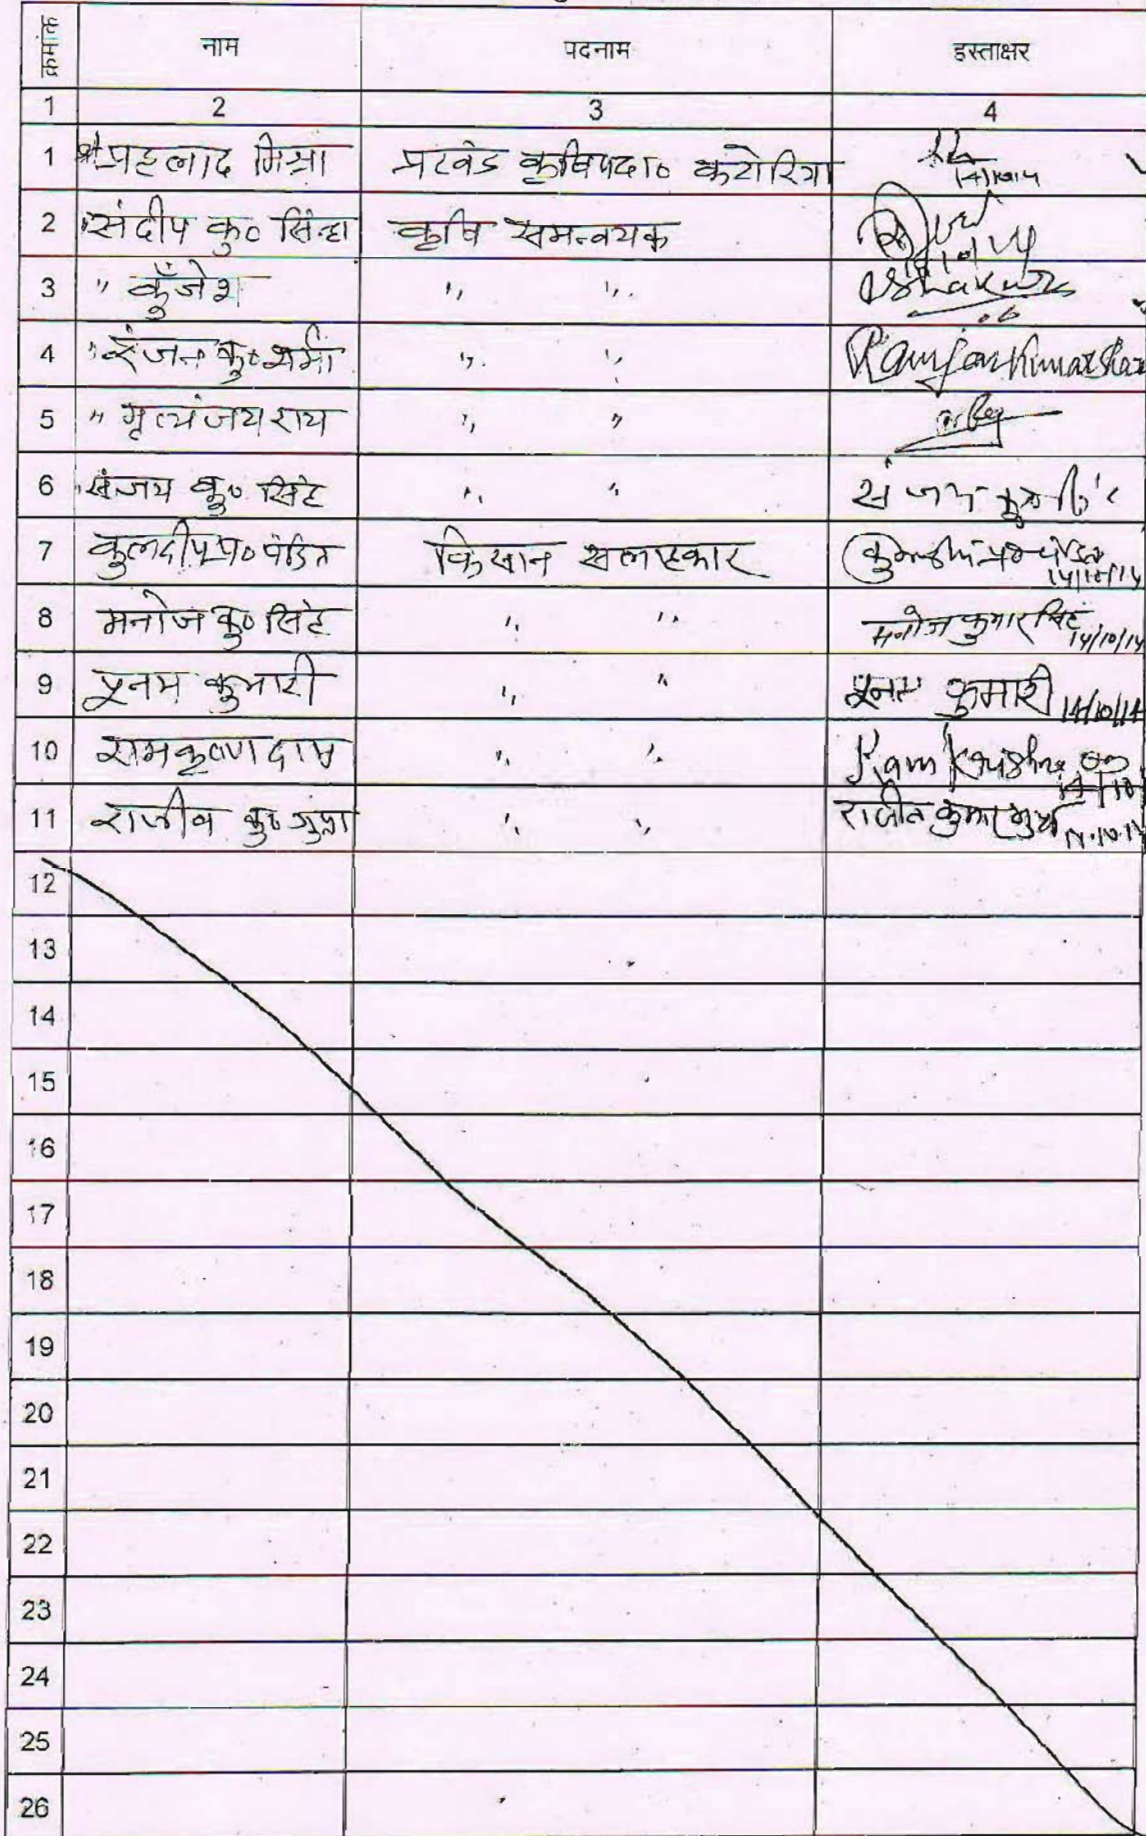 क्रमांक नाम पदनाम हस्ताक्षर
1 2 3 4
1 श्री प्रहलाद मिश्रा प्रखंड कृषि पदा० कटोरिया 14/10/14
2 " संदीप कु० सिन्हा कृषि समन्वयक
3 " कुँजेश " "
4 " रंजन कु० शर्मा " " Ranjan Kumar Shar
5 " मृत्यंजय राय " "
6 " संजय कु० सिंह " "
7 कुलदीप प्र० पंडित किसान सलाहकार 14/10/14
8 मनोज कु० सिंह " " मनोज कुमार सिंह 14/10/14
9 पूनम कुमारी " " पूनम कुमारी 14/10/14
10 रामकृष्ण दास " " Ram Krishna
11 राजीव कु० गुप्ता " " राजीव कुमार गुप्ता 14.10.14
12
13
14
15
16
17
18
19
20
21
22
23
24
25
26